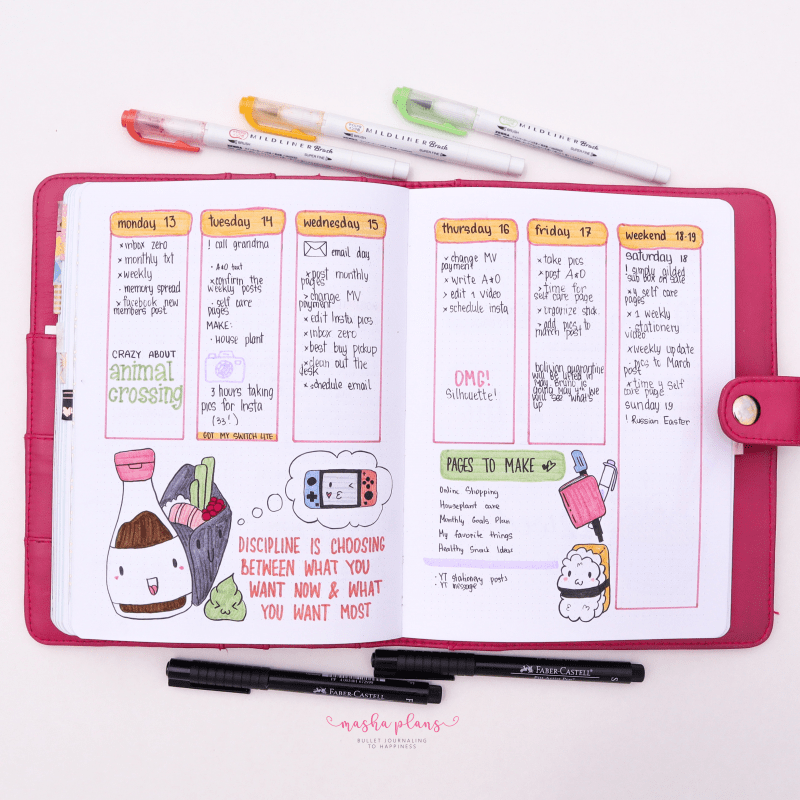 MILDLINER Brush
BRUSH
SUPER FINE
MILDLINER Brush
BRUSH
SUPER FINE
MILDLINER Brush
BRUSH
SUPER FINE
monday 13
x inbox zero
x monthly txt
x weekly
· memory spread
x facebook new
members post
CRAZY ABOUT
animal
crossing
tuesday 14
! call grandma
· A&O text
x confirm the
weekly posts
· self care
pages
MAKE:
· House plant
3 hours taking
pics for Insta
(33!)
GOT MY SWITCH LITE
wednesday 15
email day
x post monthly
pages
> change MV
payment
x edit Insta pics
x inbox zero
x best buy pickup
x clean out the
desk
x schedule email
DISCIPLINE IS CHOOSING
BETWEEN WHAT YOU
WANT NOW & WHAT
YOU WANT MOST
thursday 16
x change MV
payment
x write A&O
> edit 1 video
x schedule insta
OMG!
Silhouette!
friday 17
x take pics
x post A&O
x time for
self care page
x organize stick.
x add pics to
march post
bolivian quarantine
will be lifted in
May
will see what's
up
weekend 18-19
saturday 18
! simply gilded
sub box on sale
x 4 self care
pages
x 1 weekly
· stationery
video
x weekly update
x pics to March
post
x time 4 self
care page
sunday 19
! Russian Easter
PAGES TO MAKE
Online Shopping
Houseplant care
Monthly Goals Plan
My favorite things
Healthy Snack Ideas
· YT stationery posts
· YT message
FABER-CASTELL
F
FABER-CASTELL
S
masha plans
BULLET JOURNALING
TO HAPPINESS